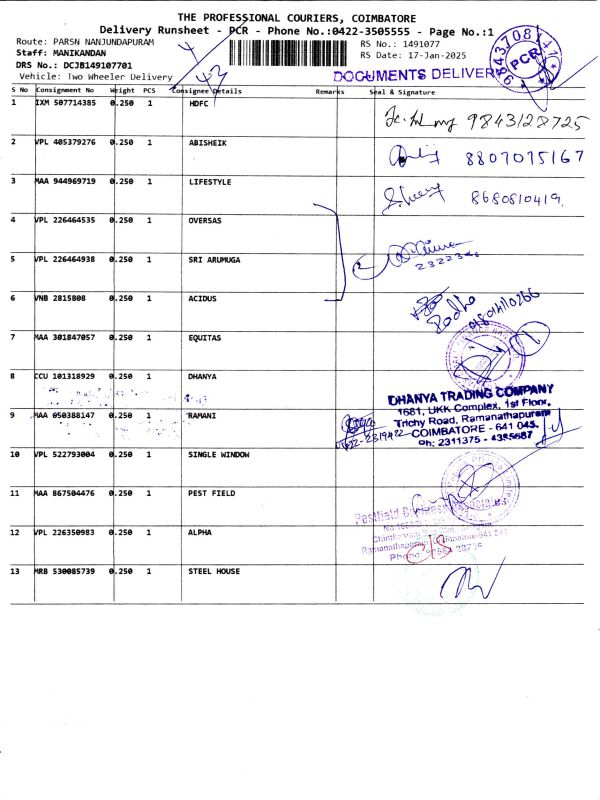 THE PROFESSIONAL COURIERS, COIMBATORE
Delivery Runsheet - PCR - Phone No.:0422-3505555 - Page No.:1
Route: PARSN NANJUNDAPURAM
RS No.: 1491077
Staff: MANIKANDAN
RS Date: 17-Jan-2025
DRS No.: DCJB149107701
Vehicle: Two Wheeler Delivery
DOCUMENTS DELIVER
PCR
43
S No Consignment No Weight PCS Consignee Details Remarks Seal & Signature
1 IXM 507714385 0.250 1 HDFC
9843128725
2 VPL 405379276 0.250 1 ABISHEIK
8807075167
3 MAA 944969719 0.250 1 LIFESTYLE
8680810419
4 VPL 226464535 0.250 1 OVERSAS
5 VPL 226464938 0.250 1 SRI ARUMUGA
6 VNB 2815808 0.250 1 ACIDUS
7 MAA 301847057 0.250 1 EQUITAS
8 CCU 101318929 0.250 1 DHANYA
DHANYA TRADING COMPANY
1681, UKK Complex, 1st Floor,
Trichy Road, Ramanathapuram
COIMBATORE - 641 045.
Ph: 2311375 - 4385687
9 MAA 650388147 0.250 1 RAMANI
10 VPL 522793004 0.250 1 SINGLE WINDOW
11 MAA 867504476 0.250 1 PEST FIELD
12 VPL 226350983 0.250 1 ALPHA
13 MRB 530085739 0.250 1 STEEL HOUSE